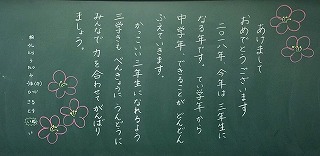 あけまして
おめでとうございます
二〇一八年、今年は三年生に
なる年です。てい学年から
中学年、できることが、どんどん
ふえていきます。
かっこいい三年生になれるよう
三学きも べんきょうに うんどうに
みんなで 力を合わせて がんばり
ましょう。